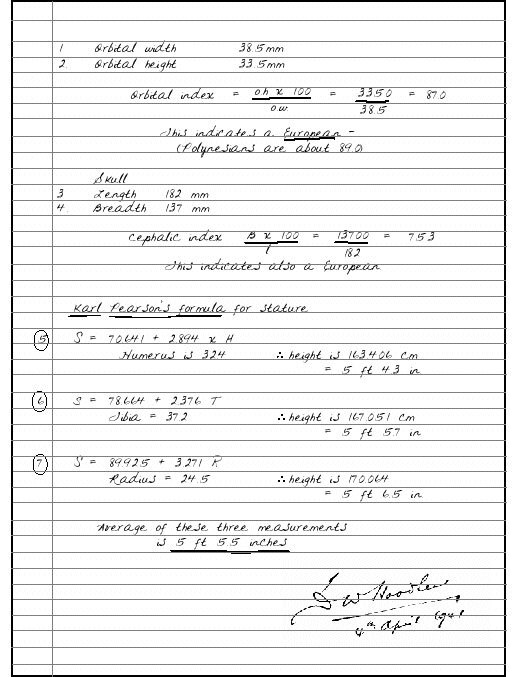 1 Orbital width 38.5mm
2. Orbital height 33.5mm
Orbital index = o.h x 100 = 3350 = 87.0
o.w. 38.5
This indicates a European -
(Polynesians are about 89.0)
Skull
3 Length 182 mm
4. Breadth 137 mm
Cephalic index B x 100 = 13700 = 75.3
l 182
This indicates also a European
Karl Pearson's formula for stature
5 S = 70.641 + 2.894 x H
Humerus is 324 ∴ height is 163.406 cm
= 5 ft 4.3 in
6 S = 78.664 + 2.376 T
Tibia = 37.2 ∴ height is 167.051 cm
= 5 ft 5.7 in
7 S = 89.925 + 3.271 R
Radius = 24.5 ∴ height is 170.064
= 5 ft 6.5 in
Average of these three measurements
is 5 ft 5.5 inches
D W Hoodless
4th April 1941